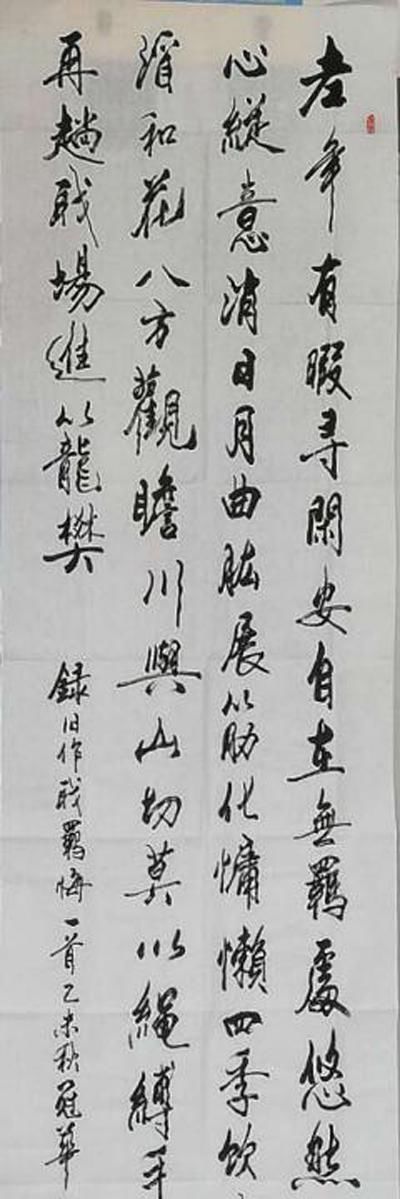 老年有暇寻閑安自在無羈處悠然
心縱意消日月曲肱展以肋化慵懶四季飲
滑和花八方觀瞻川與山切莫以繩縛手
再趟戰場進以龍樊
録旧作戰羈悔一首乙未秋冠華